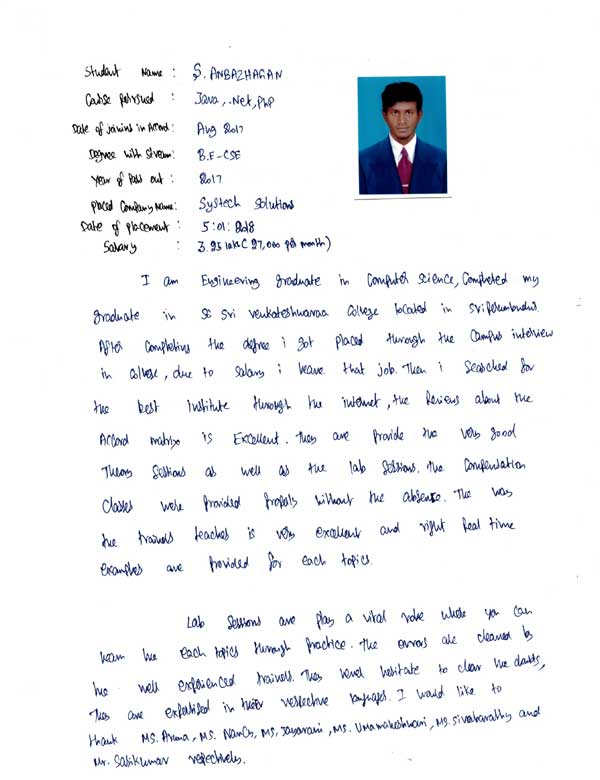 Student Name : S. ANBAZHAGAN
Course Persued : Java, .Net, PHP
Date of joining in Accord : Aug 2017
Degree with Stream : B.E-CSE
Year of Pass out : 2017
Placed Company Name : Systech Solutions
Date of placement : 5:01:2018
Salary : 3.25 laks (27,000 per month)
I am Engineering graduate in Computer Science, Completed my
graduate in Sri venkateshwaraa College located in Sriperumbudur.
After completing the degree i got placed through the Campus interview
in college, due to salary i leave that job. Then i Searched for
the best institute through the internet, the Reviews about the
Accord matrix is Excellent. They are provide the very good
Theory Sessions as well as the lab Sessions. the Compensation
Classes were provided properly without the absence. The way
the trainers teaches is very excellent and right Real time
examples are provided for each topics.
Lab Sessions are play a vital role where you can
learn the each topics through practice. The errors are cleared by
the well experienced trainers. They never hesitate to clear the doubts,
They are expertised in their respective languages. I would like to
thank MS. Aruna, MS. Nancy, MS. Jayarani, MS. Umamaheshwari, MS. Sivabarathy and
Mr. Sasikumar respectively.